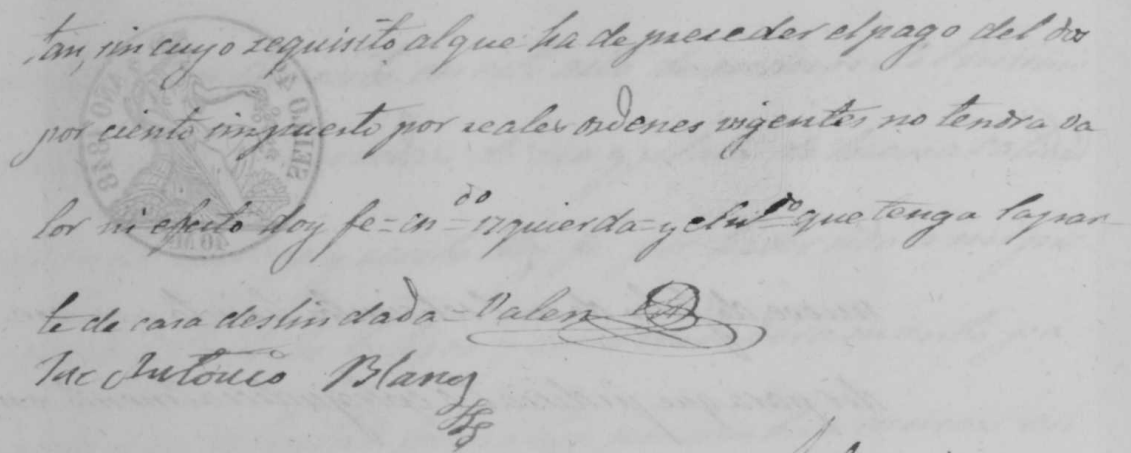 tan, sin cuyo requisito, al que ha de preceder el pago del dos
por ciento impuesto por reales ordenes vigentes no tendra va
lor ni efecto doy fe = en.do = izquierda = y el .do = que tenga la par-
te de casa deslindada = Valen
Antonio Blanq